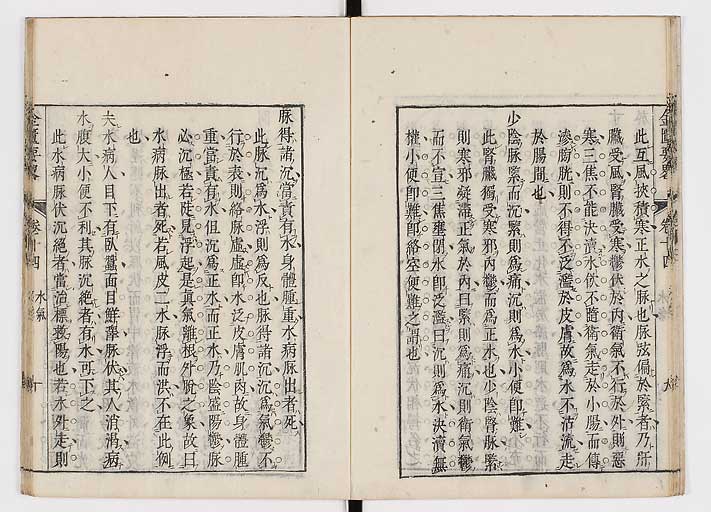 此互風挾積寒正水之脉也脉弦偏於緊者乃肝
臟受風腎臟受寒鬱伏於内衛氣不行於外則惡
寒三焦不能決瀆水伏不瞻衛氣走於小腸而傳
滲膀胱則不得不泛濫於皮膚故爲水不沽流走
於腸間也
少陰脉緊而沉緊則爲痛沉則爲水小便卽難
此腎臟獨受寒邪内鬱而爲正水也少陰腎脉緊
則寒邪凝滯正氣於内曰緊則爲痛沉則衛氣鬱
而不宣三焦壅閉水卽泛濫曰沉則爲水決瀆無
權小便卽難卽絡空便難之謂也
脉得諸沉當責有水身體腫重水病脉出者死
此脉沉爲水浮則爲反也脉得諸沉沉爲氣鬱不
行於表則絡脉虛虛卽水泛皮膚肌肉故身體腫
重當責有水但沉爲正水而正水乃陰盛陽鬱脉
必沉極若徒見浮起是眞氣離根外脫之象故曰
水病脉出者死若風皮二水脉浮而洪不在此例
也
夫水病人目下有臥蠶面目鮮澤脉伏其人消渴病
水腹大小便不利其脉沉絶者有水可下之
此水病脉伏沉絶者當治標救陽也若水外走則
金匱要畧
卷十四
水氣